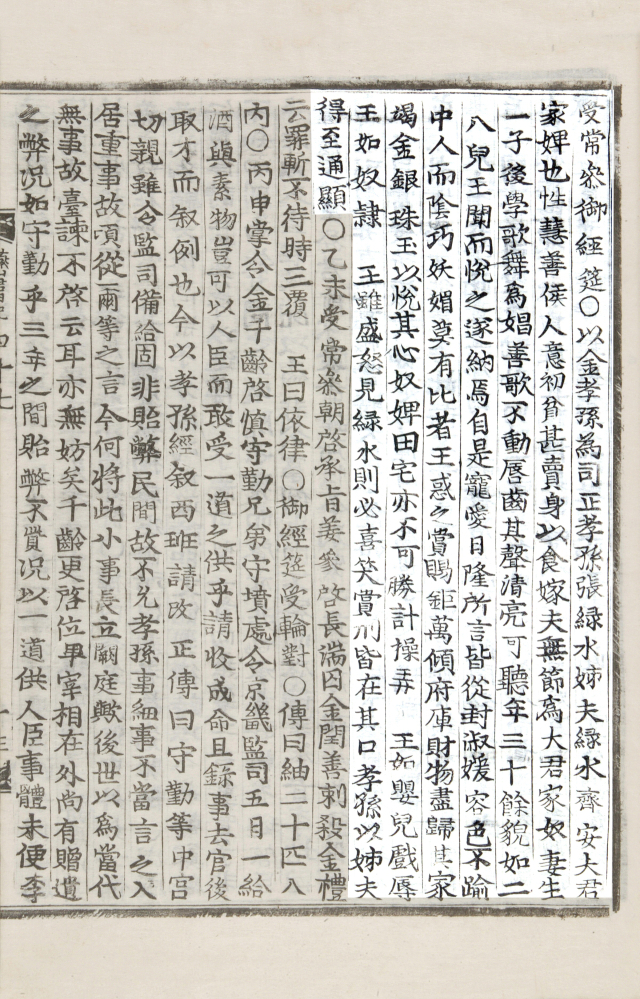 受常參御經筵○以金孝孫為司正孝孫張緑水姊夫緑水齊安大君
家婢也性慧善侯人意初貧甚賣身以食嫁夫無節為大君家奴妻生
一子後學歌舞為娼善歌不動唇齒其聲清亮可聽年三十餘貌如二
八兒王聞而悅之遂納焉自是寵愛日隆所言皆從封淑媛容色不踰
中人而陰巧妖媚莫有比者王惑之賞賜鉅萬傾府庫財物盡歸其家
竭金銀珠玉以悅其心奴婢田宅亦不可勝計操弄 王如嬰兒戲辱
王如奴隷 王雖盛怒見緑水則必喜笑賞刑皆在其口孝孫以姊夫
得至通顯○乙未受常參朝啓承旨姜參啓長湍囚金閏善刺殺金禮
云罪斬不待時三覆 王曰依律○御經筵受輪對○傳曰紬三十匹入
內○丙申掌令金千齡啓慎守勤兄弟守墳處令京畿監司五日一給
酒與素物豈可以人臣而敢受一道之供乎請收成命且錄事去官後
取才而叙例也今以孝孫經叙西班請改正傳曰守勤等中宮
切親雖令監司備給固非貽弊民間故不允孝孫事細事不當言之入
居重事故頃從爾等之言今何將此小事長立闕庭歟後世以為當代
無事故臺諫不啓云耳亦無妨矣千齡更啓位卑宰相在外尚有贈遺
之弊况如守勤乎三年之間貽弊不貲况以一道供人臣事體未便李